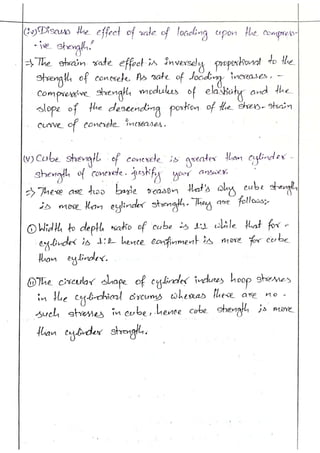 (iv) Discuss the effect of rate of loading upon the compress-
-ive strength.
=> The strain rate effect is inversely proportional to the
strength of concrete. As rate of loading increases. -
compressive strength modulus of elasticity and the
slope of the descending portion of the stress-strain
curve of concrete increases.
(v) Cube strength of concrete is greater than cylinder -
strength of concrete. justify your answer.
=> There are two basic reason that's why cube strength
is more than cylinder strength. They are follows:-
① Width to depth ratio of cube is 1:1 while that for -
cylinder is 1:2 hence confinment is more for cube
than cylinder.
② The circular shape of cylinder induces hoop stresses
in the cylindrical whereas there are no -
such stresses in cube, hence cube strength is more
than cylinder strength.